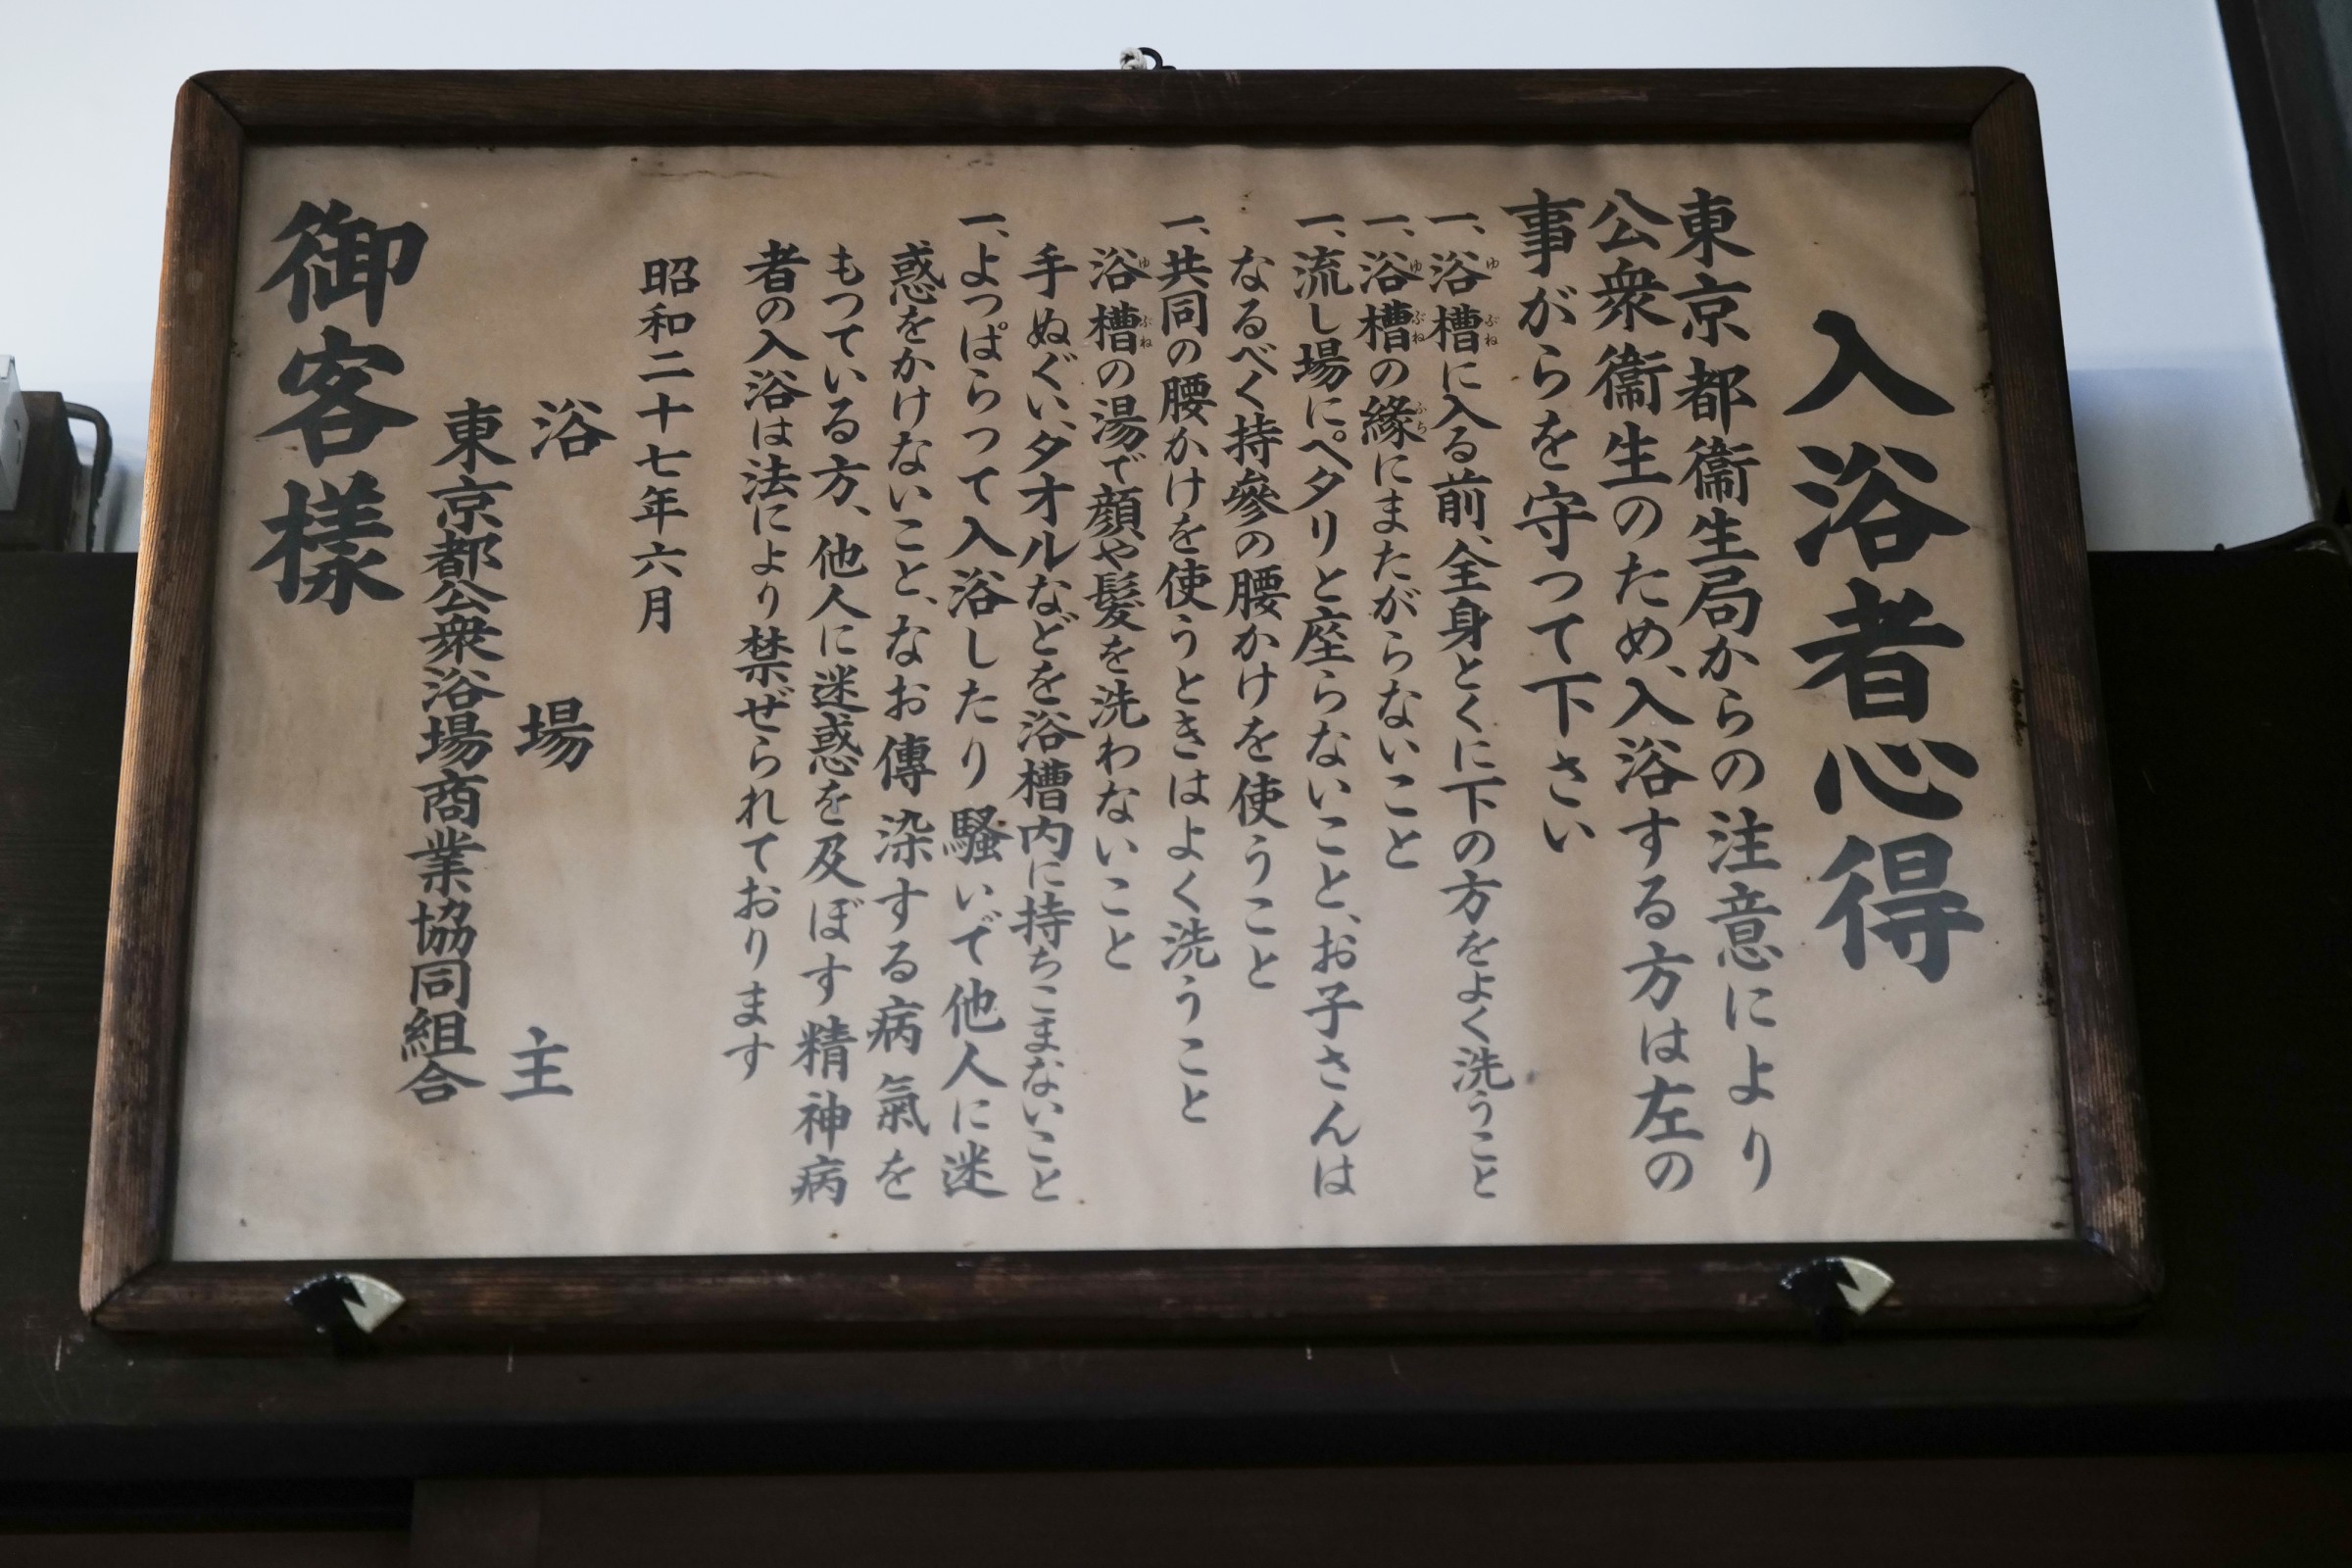 入浴者心得
東京都衞生局からの注意により
公衆衞生のため、入浴する方は左の
事がらを守つて下さい
一、浴槽に入る前、全身とくに下の方をよく洗うこと
一、浴槽の縁にまたがらないこと
一、流し場にペタリと座らないこと、お子さんは
なるべく持參の腰かけを使うこと
一、共同の腰かけを使うときはよく洗うこと
浴槽の湯で顔や髪を洗わないこと
手ぬぐい、タオルなどを浴槽内に持ちこまないこと
一、よっぱらつて入浴したり騒いで他人に迷
惑をかけないこと、なお傳染する病氣を
もつている方、他人に迷惑を及ぼす精神病
者の入浴は法により禁ぜられております
昭和二十七年六月
浴場主
東京都公衆浴場商業協同組合
御客様